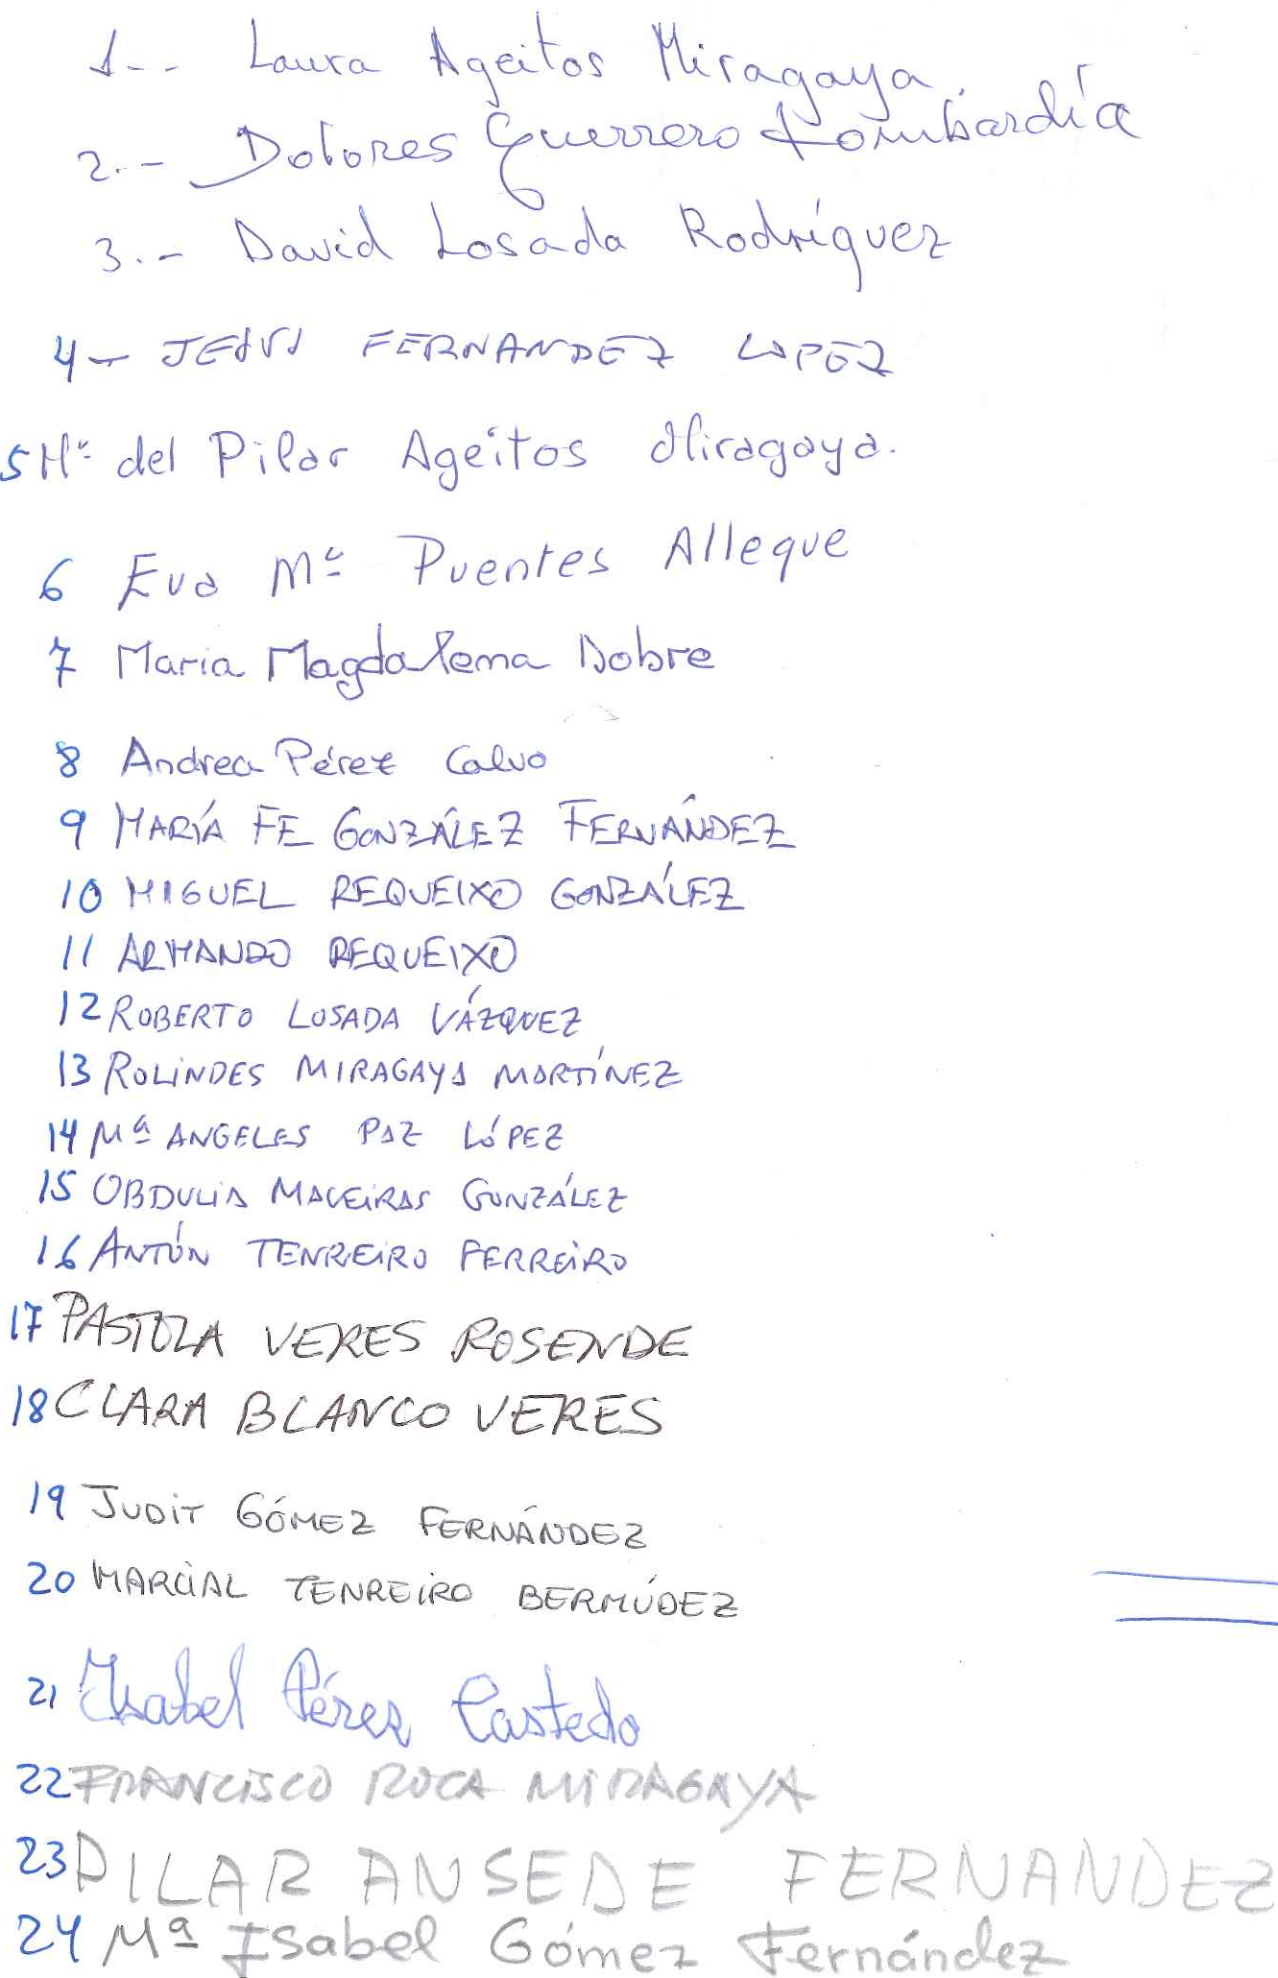 1.- Laura Ageitos Miragaya
2.- Dolores Guerrero Lombardía
3.- David Losada Rodríguez
4- JESUS FERNANDEZ LOPEZ
5 Mª del Pilar Ageitos Miragaya.
6 Eva Mª Puentes Alleque
7 Maria Magdalena Dobre
8 Andrea Pérez Calvo
9 MARÍA FE GONZÁLEZ FERNÁNDEZ
10 MIGUEL REQUEIXO GONZÁLEZ
11 ARMANDO REQUEIXO
12 ROBERTO LOSADA VÁZQUEZ
13 ROLINDES MIRAGAYA MARTÍNEZ
14 Mª ANGELES PAZ LÓPEZ
15 OBDULIA MACEIRAS GONZÁLEZ
16 ANTÓN TENREIRO FERREIRO
17 PASTORA VERES ROSENDE
18 CLARA BLANCO VERES
19 JUDIT GÓMEZ FERNÁNDEZ
20 MARCIAL TENREIRO BERMÚDEZ
21 Isabel Pérez Castedo
22 FRANCISCO ROCA MIRAGAYA
23 PILAR ANSEDE FERNANDEZ
24 Mª Isabel Gómez Fernández